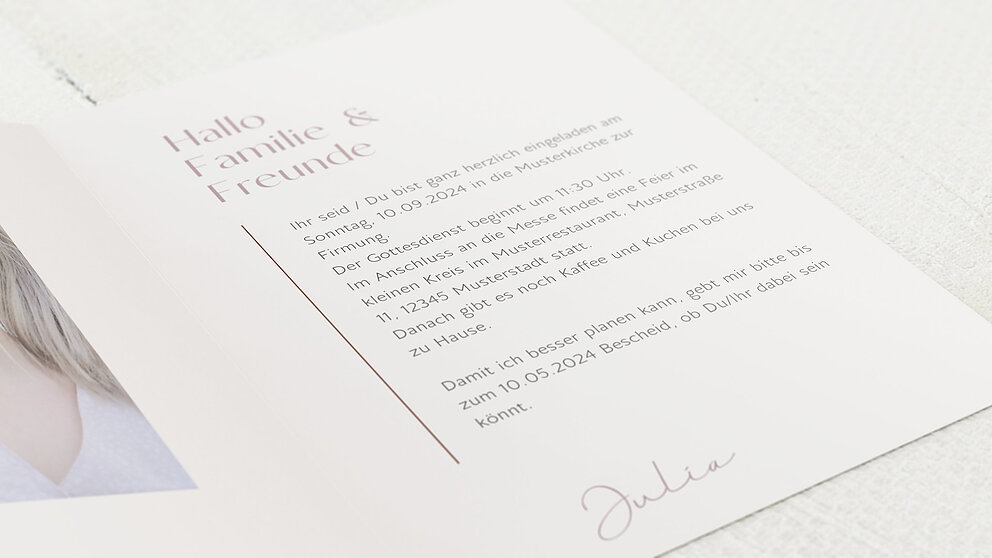 Hallo
Familie &
Freunde
Ihr seid / Du bist ganz herzlich eingeladen am
Sonntag, 10.09.2024 in die Musterkirche zur
Firmung.
Der Gottesdienst beginnt um 11:30 Uhr.
Im Anschluss an die Messe findet eine Feier im
kleinen Kreis im Musterrestaurant, Musterstraße
11, 12345 Musterstadt statt.
Danach gibt es noch Kaffee und Kuchen bei uns
zu Hause.
Damit ich besser planen kann, gebt mir bitte bis
zum 10.05.2024 Bescheid, ob Du/Ihr dabei sein
könnt.
Julia